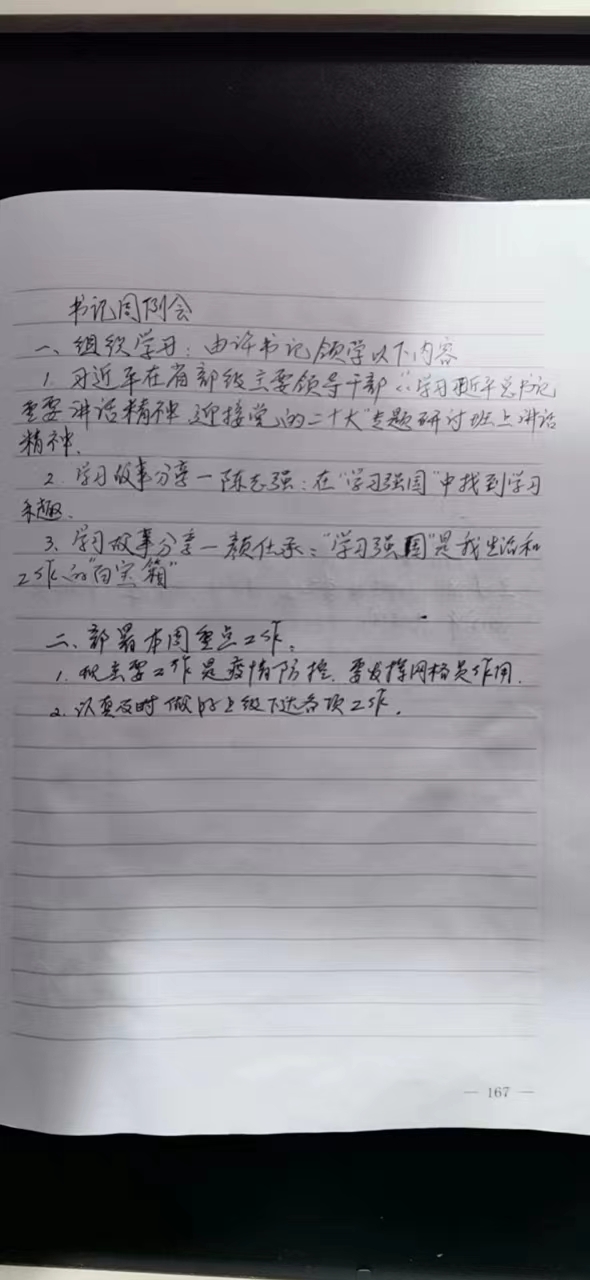 书记周例会
一、组织学习：由许书记领学以下内容
1. 习近平在省部级主要领导干部“学习习近平总书记
重要讲话精神 迎接党的二十大”专题研讨班上讲话
精神.
2. 学习故事分享—陈志强：在“学习强国”中找到学习
乐趣.
3、学习故事分享—颜仕承：“学习强国”是我生活和
工作的“百宝箱”
二、部署本周重点工作：
1. 主要工作是疫情防控. 要发挥网格员作用.
2. 认真及时做好上级下达各项工作.
— 167 —